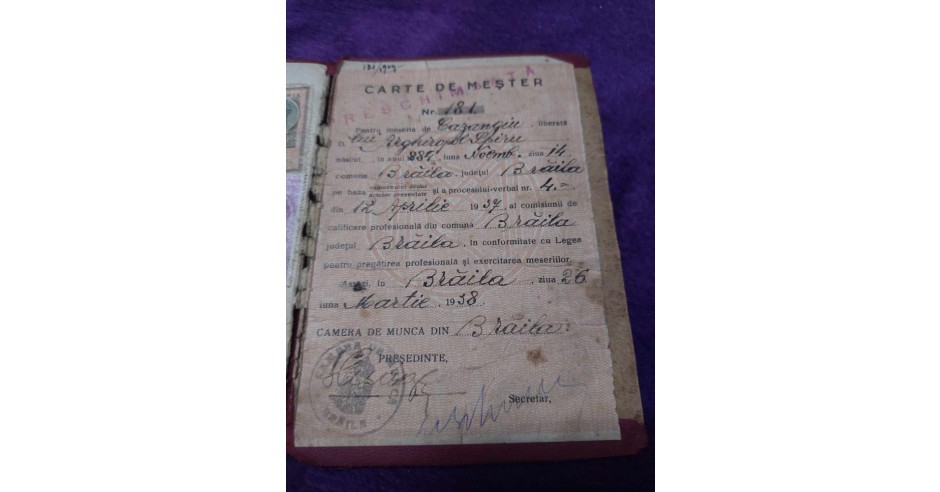 CARTE DE MEȘTER
RESCHIMBATA
Nr. 181
Pentru meseria de Cazangiu, liberată
D. lui Spiru
născut, în anul 887, luna Noemb. ziua 14
comuna Brăila județul Brăila
pe baza și a procesului-verbal nr. 4.-
din 12 Aprilie 1937, al comisiunii de
calificare profesională din comuna Brăila
județul Brăila, în conformitate cu Legea
pentru pregătirea profesională și exercitarea meseriilor.
Astăzi, în Brăila, ziua 26
luna Martie, 1938.
CAMERA DE MUNCA DIN Brăila.
PREȘEDINTE,
Secretar,